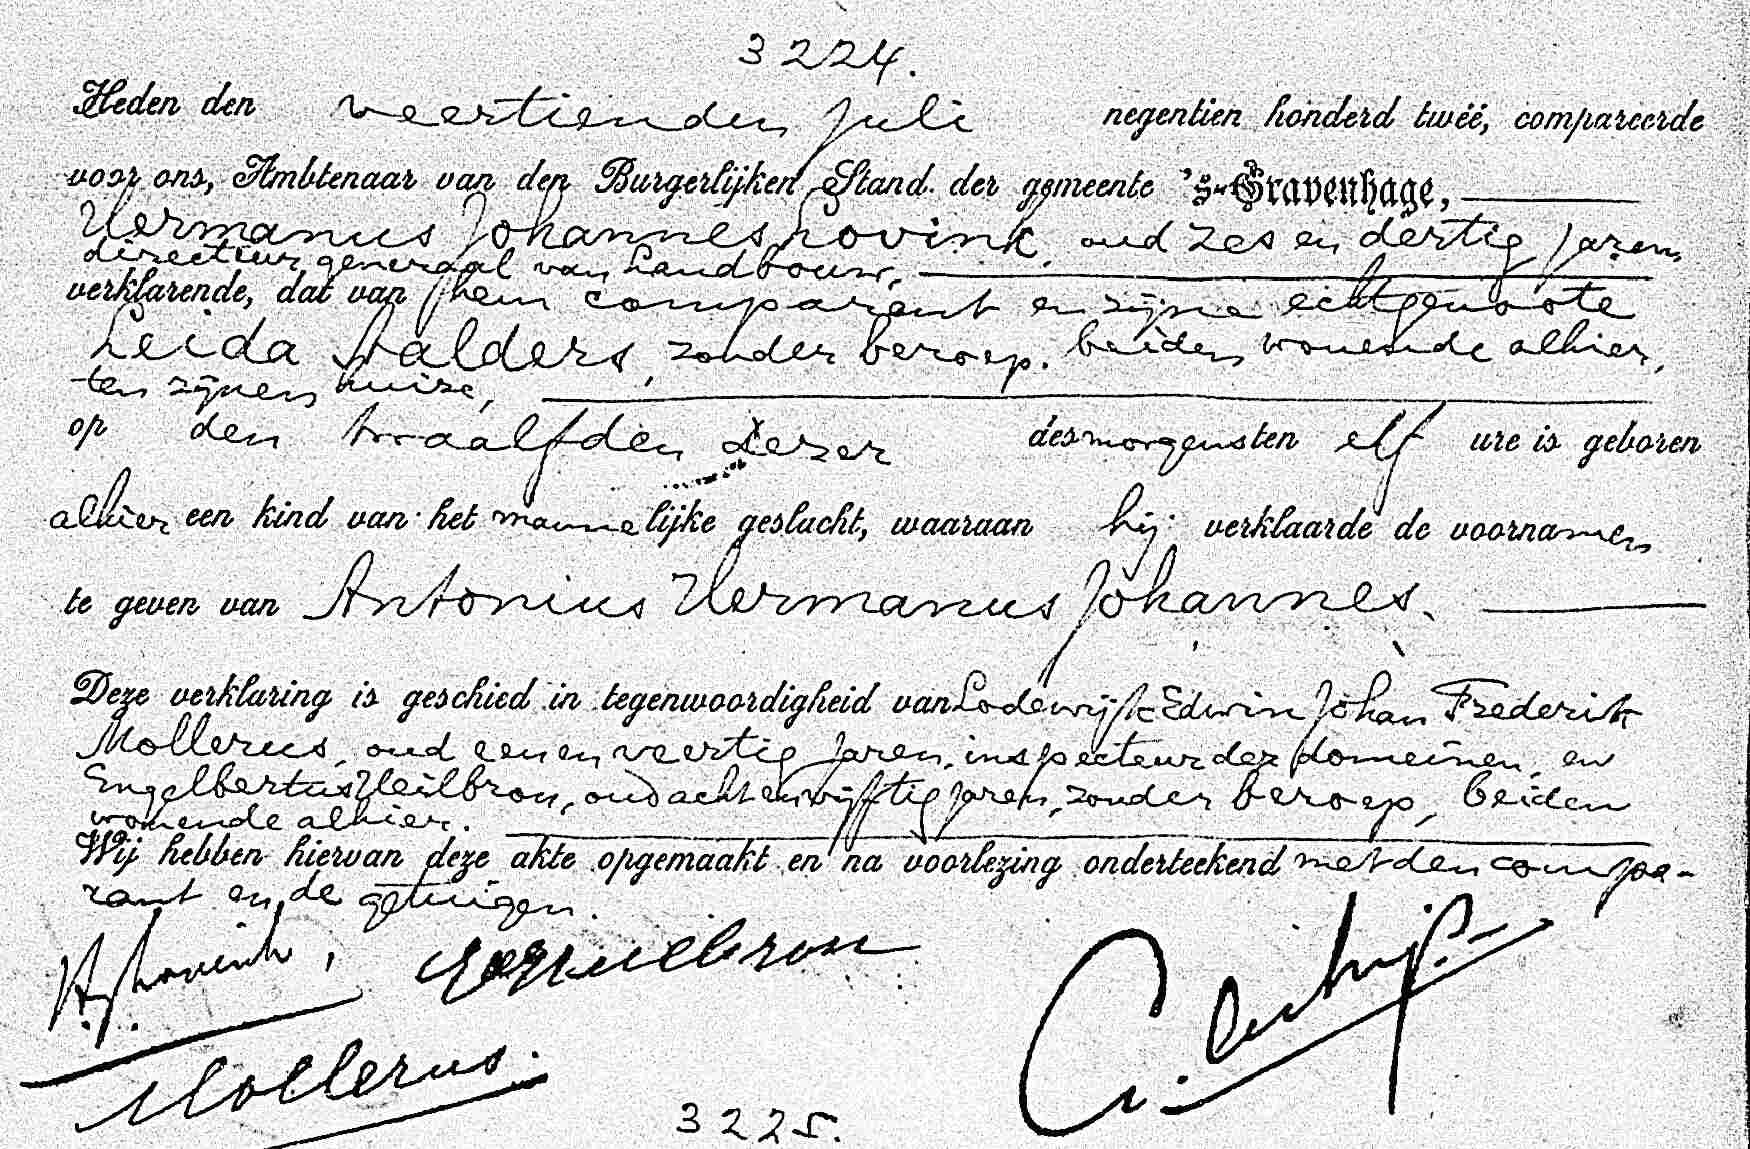 3224.
Heden den veertienden Juli negentien honderd twéé, compareerde
voor ons, Ambtenaar van den Burgerlijken Stand der gemeente 's-Gravenhage,
Hermanus Johannes Lovink, oud zes en dertig jaren,
directeur generaal van Landbouw,
verklarende, dat van hem comparant en zijne echtgenoote
Leida Aalders, zonder beroep, beiden wonende alhier,
ten zijnen huize,
op den twaalfden dezer des morgens ten elf ure is geboren
alhier een kind van het mannelijke geslacht, waaraan hij verklaarde de voornamen
te geven van Antonius Hermanus Johannes.
Deze verklaring is geschied in tegenwoordigheid van Lodewijk Edwin Johan Frederik
Mollerus, oud een en veertig jaren, inspecteur der domeinen, en
Engelbertus Heilbron, oud acht en vijftig jaren, zonder beroep, beiden
wonende alhier.
Wij hebben hiervan deze akte opgemaakt en na voorlezing onderteekend met den compa-
rant en de getuigen.
H.J. Lovink, Heilbron
Mollerus.
3225.